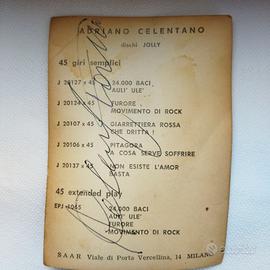 ADRIANO CELENTANO
dischi JOLLY
45 giri semplici
J 20127 x 45 24.000 BACI
AULI' ULE'
J 20124 x 45 FURORE
MOVIMENTO DI ROCK
J 20107 x 45 GIARRETTIERA ROSSA
CHE DRITTA !
J 20106 x 45 PITAGORA
A COSA SERVE SOFFRIRE
J 20137 x 45 NON ESISTE L'AMOR
BASTA
45 extended play
EPJ 1045 24.000 BACI
AULI' ULE'
FURORE
MOVIMENTO DI ROCK
SAAR Viale di Porta Vercellina, 14 MILANO